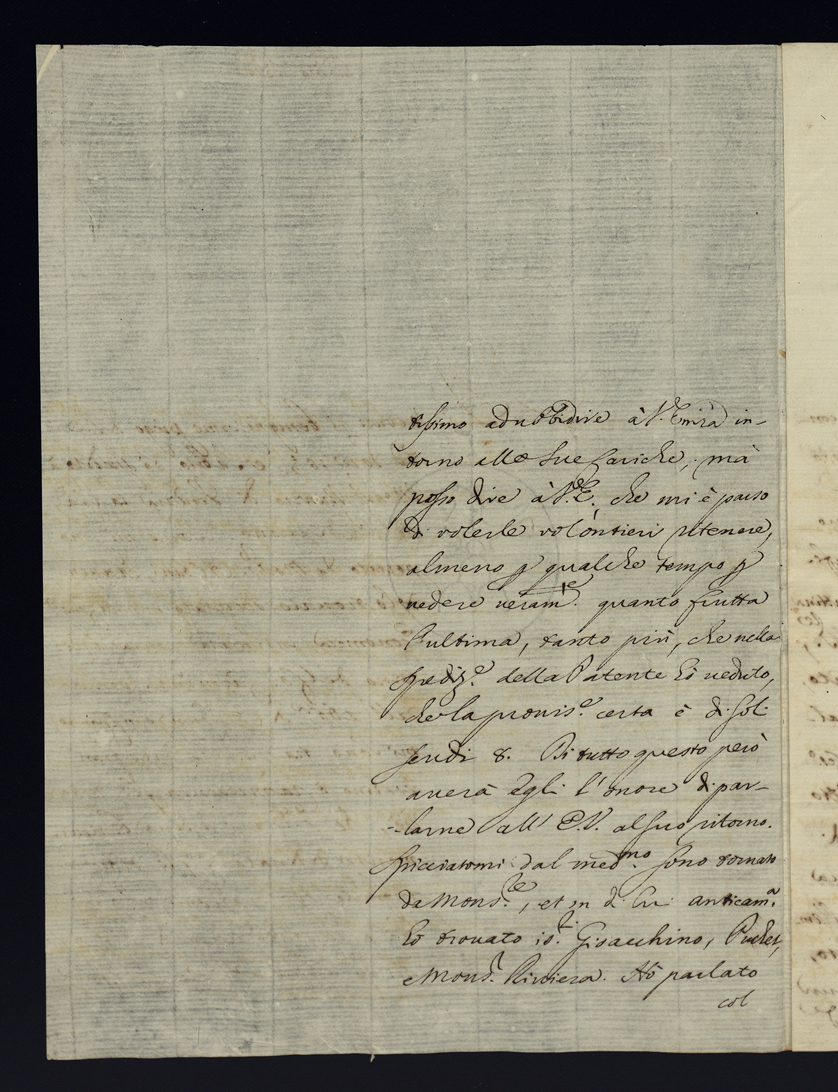 tissimo ad ubbidire à V. Em.za in-
torno alle Sue Cariche, mà
posso dire à V. E. che mi è parso
di volerle volontieri ritenere,
almeno p qualche tempo p
vedere veram.te quanto frutta
l'ultima, tanto più, che nella
spediz.e della Patente hò veduto,
che la provis.e certa è di soli
scudi 8. Di tutto questo però
averà Egli l'onore di par-
larne all' E. V. al suo ritorno.
Spicciatomi dal med.mo sono tornato
da Mons.re, et in di lui anticam.a
hò trovato i S.ri Gioacchino,
e Mons.r Riviera. Hò parlato
col